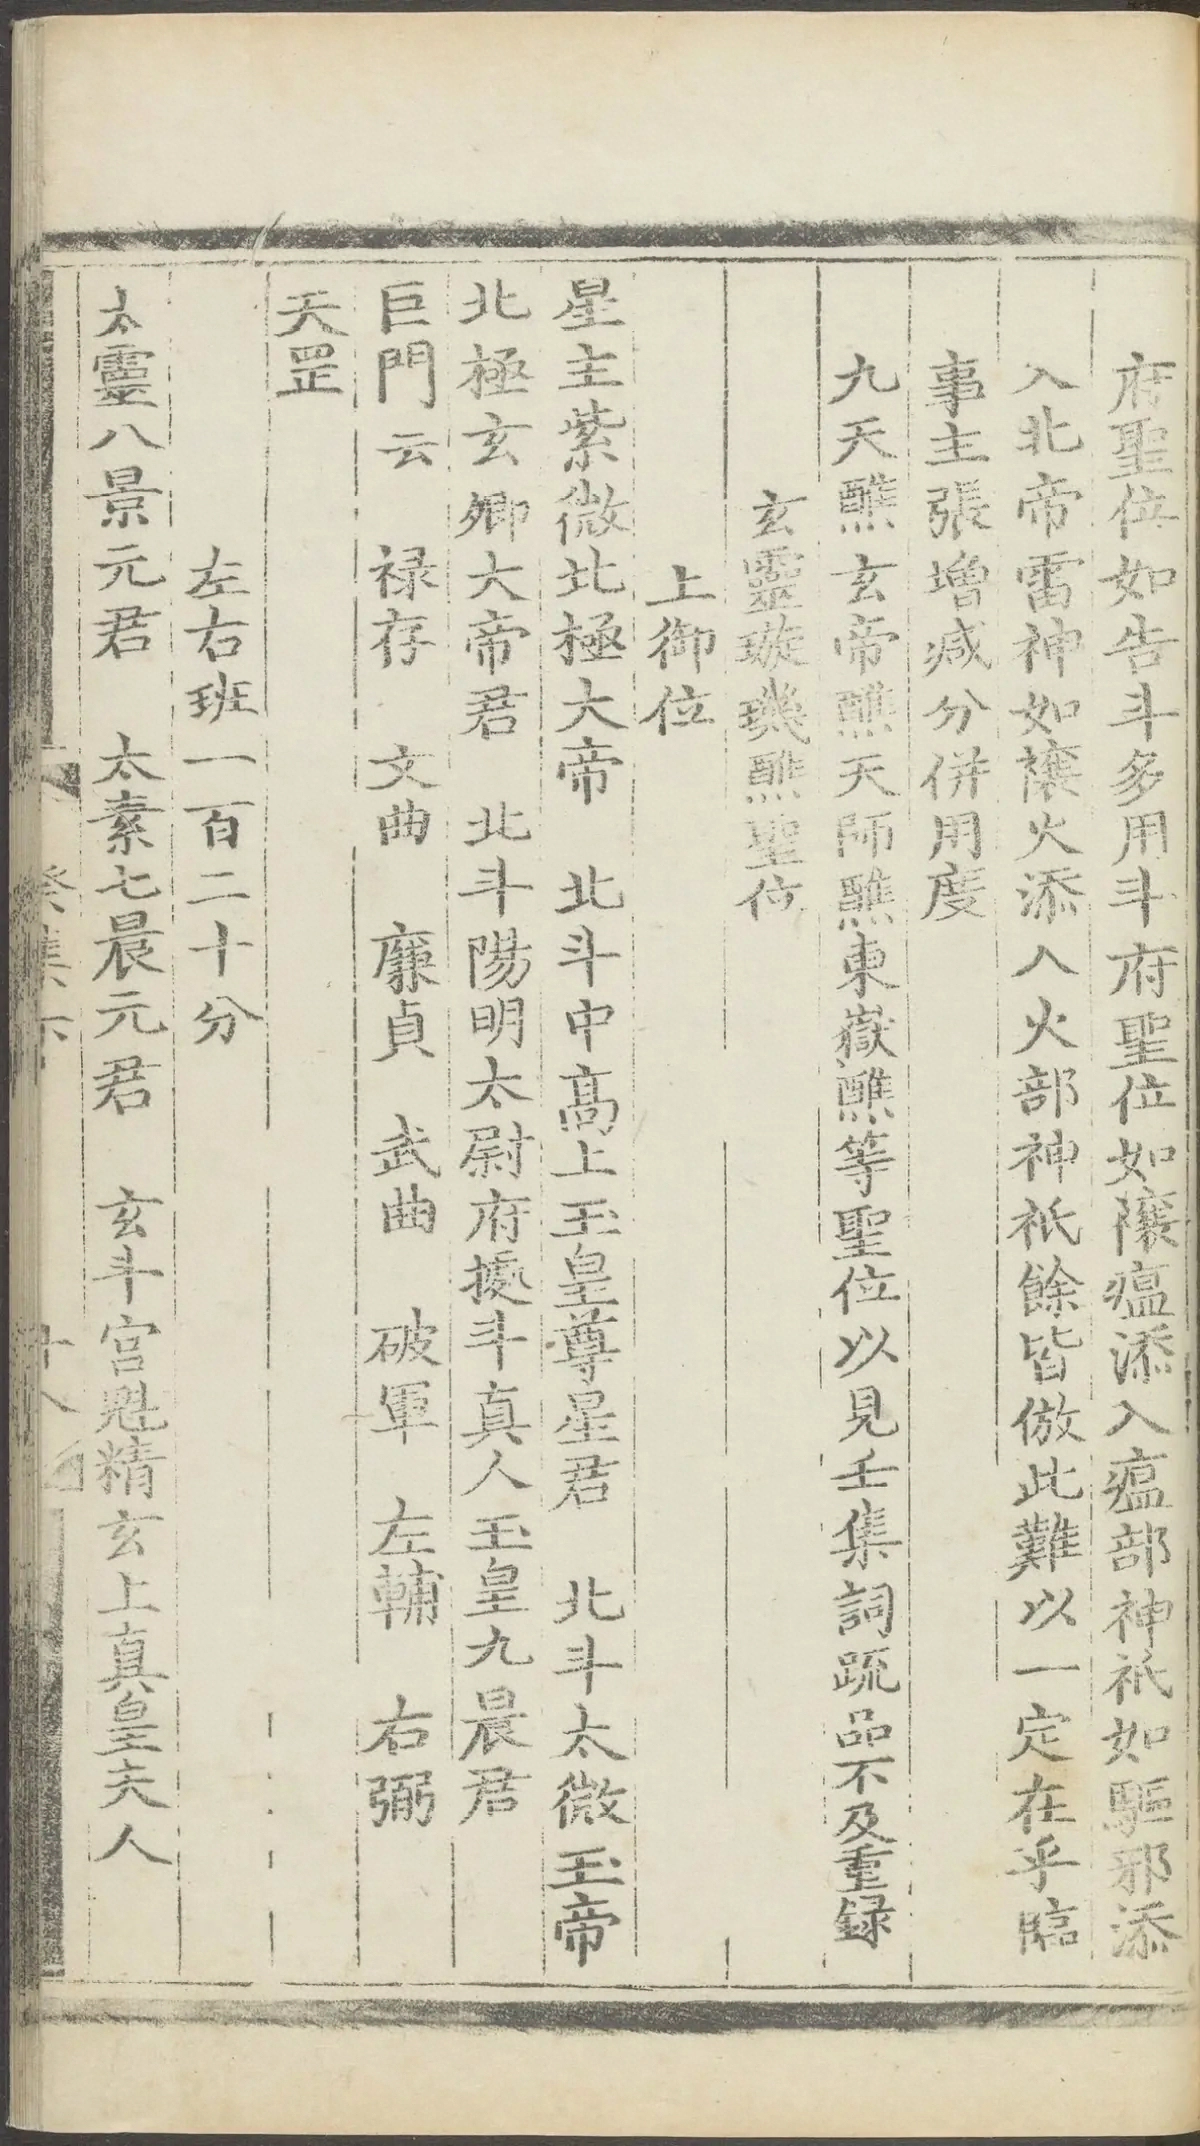 府聖位如告斗多用斗府聖位如禳瘟添入瘟部神祇如驅邪添
入北帝雷神如禳火添入火部神祇餘皆倣此難以一定在乎臨
事主張增减分併用度
九天醮玄帝醮天師醮東嶽醮等聖位以見壬集詞䟽品不及重録
玄靈璇璣醮聖位
上御位
星主紫微北極大帝　北斗中高上玉皇尊星君　北斗太微玉帝
北極玄卿大帝君　北斗陽明太尉府摅斗真人玉皇九晨君
巨門云　禄存　文曲　廉貞　武曲　破軍　左輔　右弼
天罡
左右班一百二十分
太靈八景元君　太素七晨元君　玄斗宫魁精玄上真皇夫人
癸集六
十八